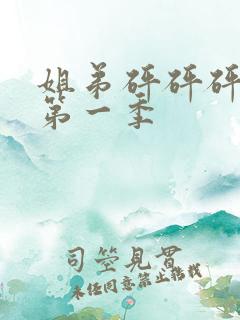 姐弟砰砰砰
第一季
司茔見霄
未经同意禁止转载